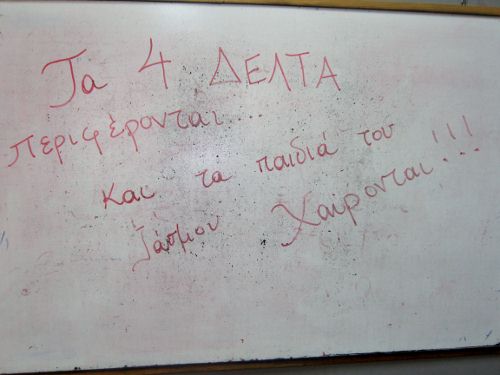 Τα 4 ΔΕΛΤΑ
περιφέρονται...
και τα παιδιά του
Ιάσμου χαίρονται!!!